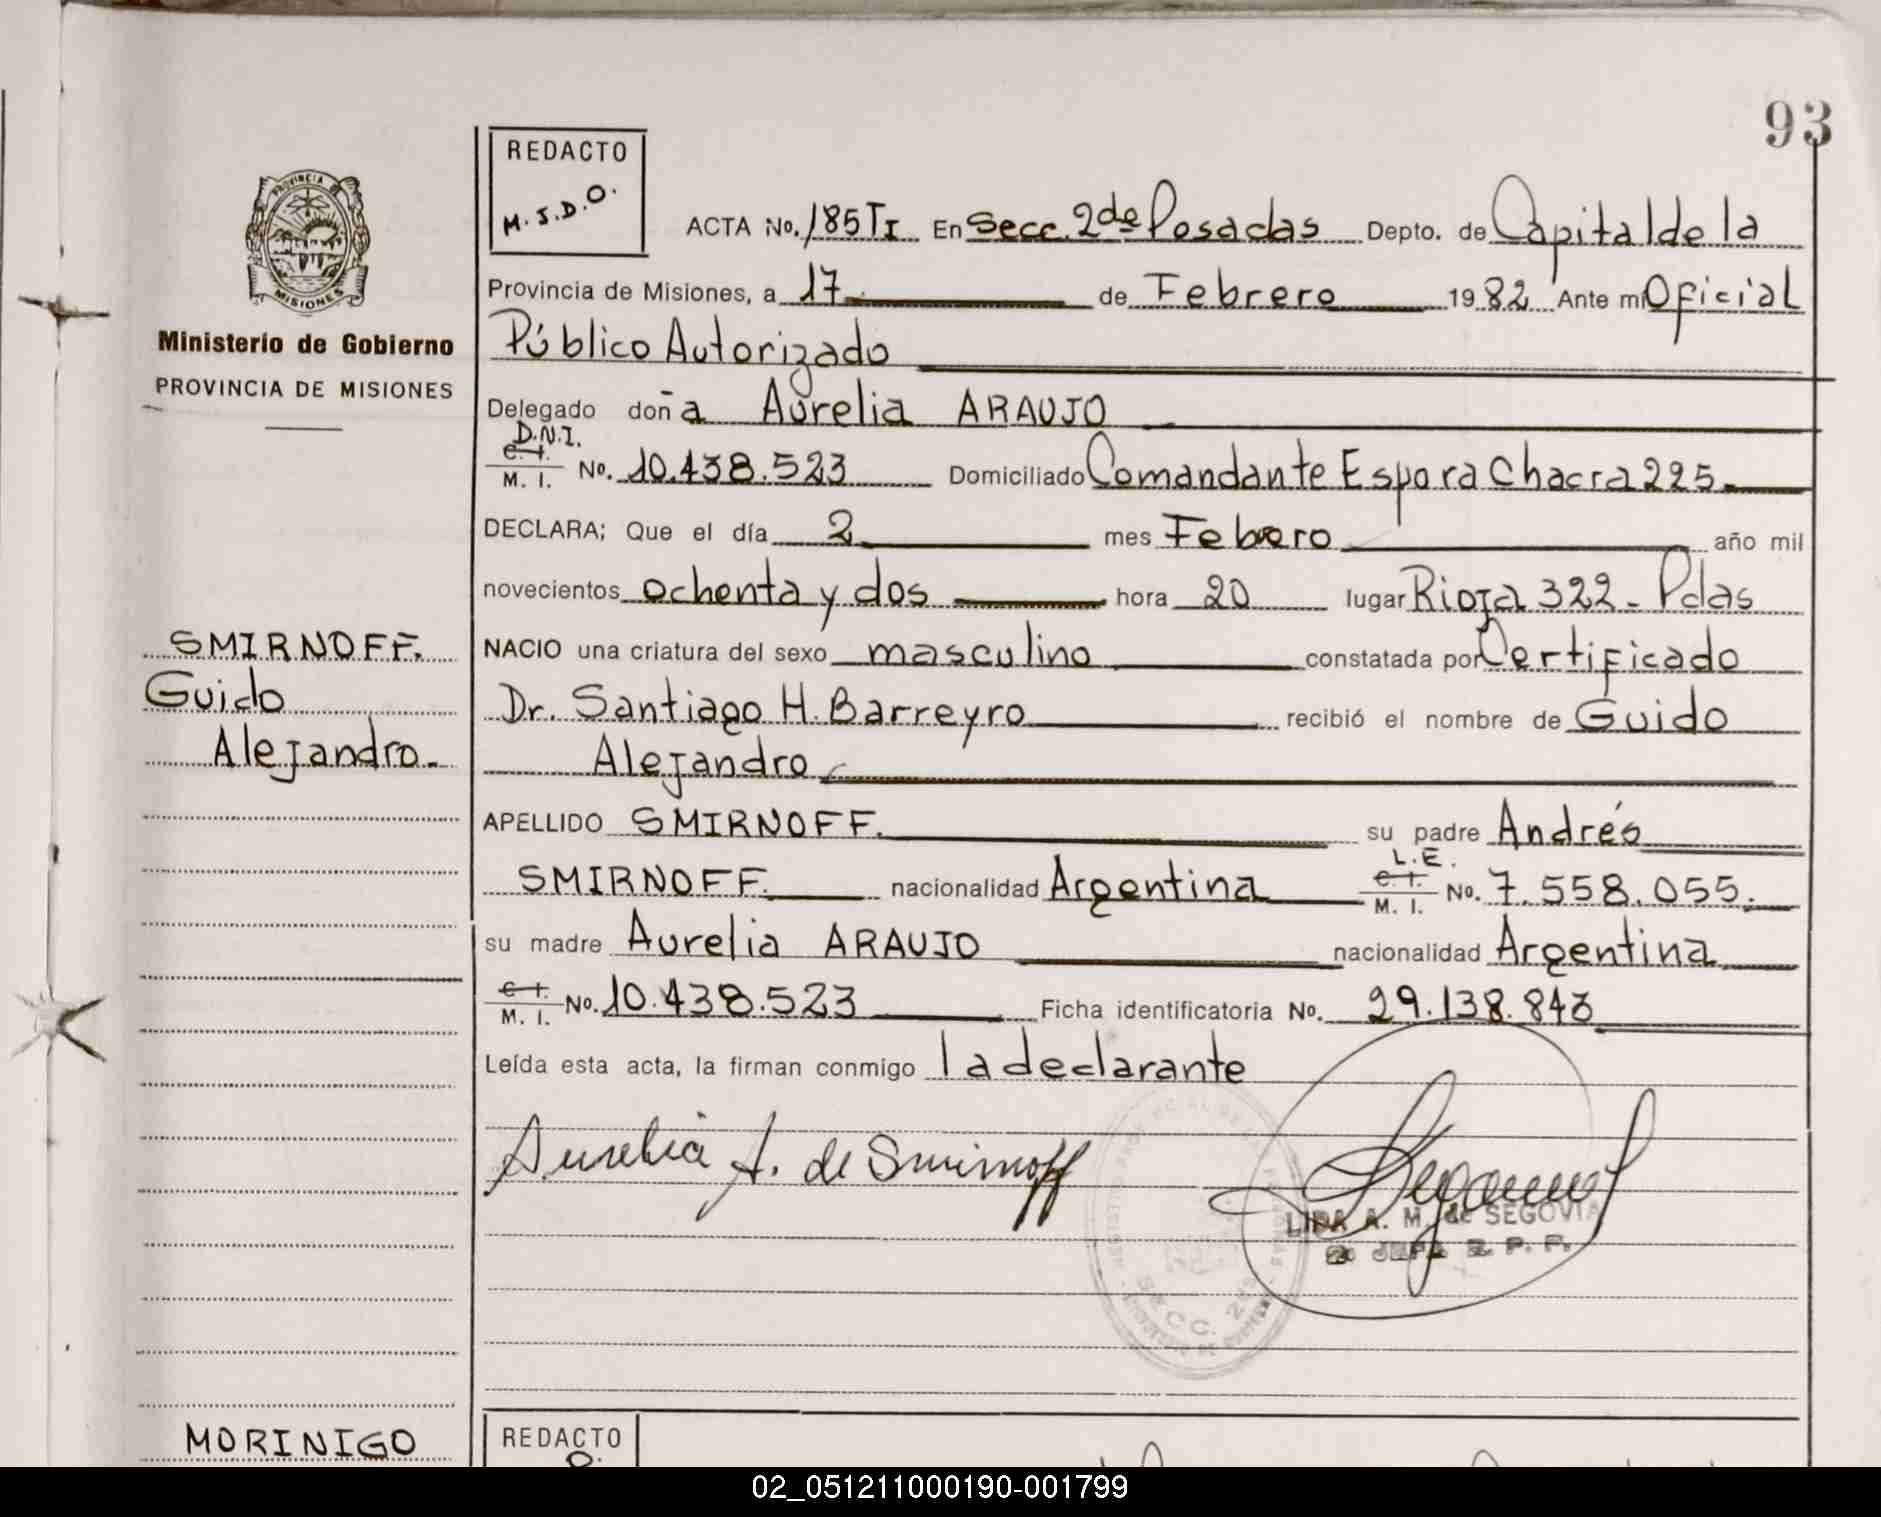 93
REDACTO
M.J.D.O.
ACTA No. 185 TI En Secc. 2da Posadas Depto. de Capital de la
Provincia de Misiones, a 17 de Febrero 1982 Ante mi Oficial
Público Autorizado
Delegado doña Aurelia ARAUJO
D.N.I.
C. I.
M. I. No. 10.438.523 Domiciliado Comandante Espora Chacra 225.
DECLARA; Que el día 2 mes Febrero año mil
novecientos ochenta y dos hora 20 lugar Rioja 322 - Pdas
NACIO una criatura del sexo masculino constatada por Certificado
Dr. Santiago H. Barreyro recibió el nombre de Guido
Alejandro
APELLIDO SMIRNOFF. su padre Andrés
L.E.
C. I.
SMIRNOFF. nacionalidad Argentina M. I. No. 7.558.055.
su madre Aurelia ARAUJO nacionalidad Argentina
C. I.
M. I. No. 10.438.523 Ficha identificatoria No. 29.138.843
Leída esta acta, la firman conmigo la declarante
Aurelia A. de Smirnoff
LIDA A. M. de SEGOVIA
SECC. 2da
PROVINCIA DE
MISIONES
Ministerio de Gobierno
PROVINCIA DE MISIONES
SMIRNOFF.
Guido
Alejandro.
MORINIGO
REDACTO
02_051211000190-001799